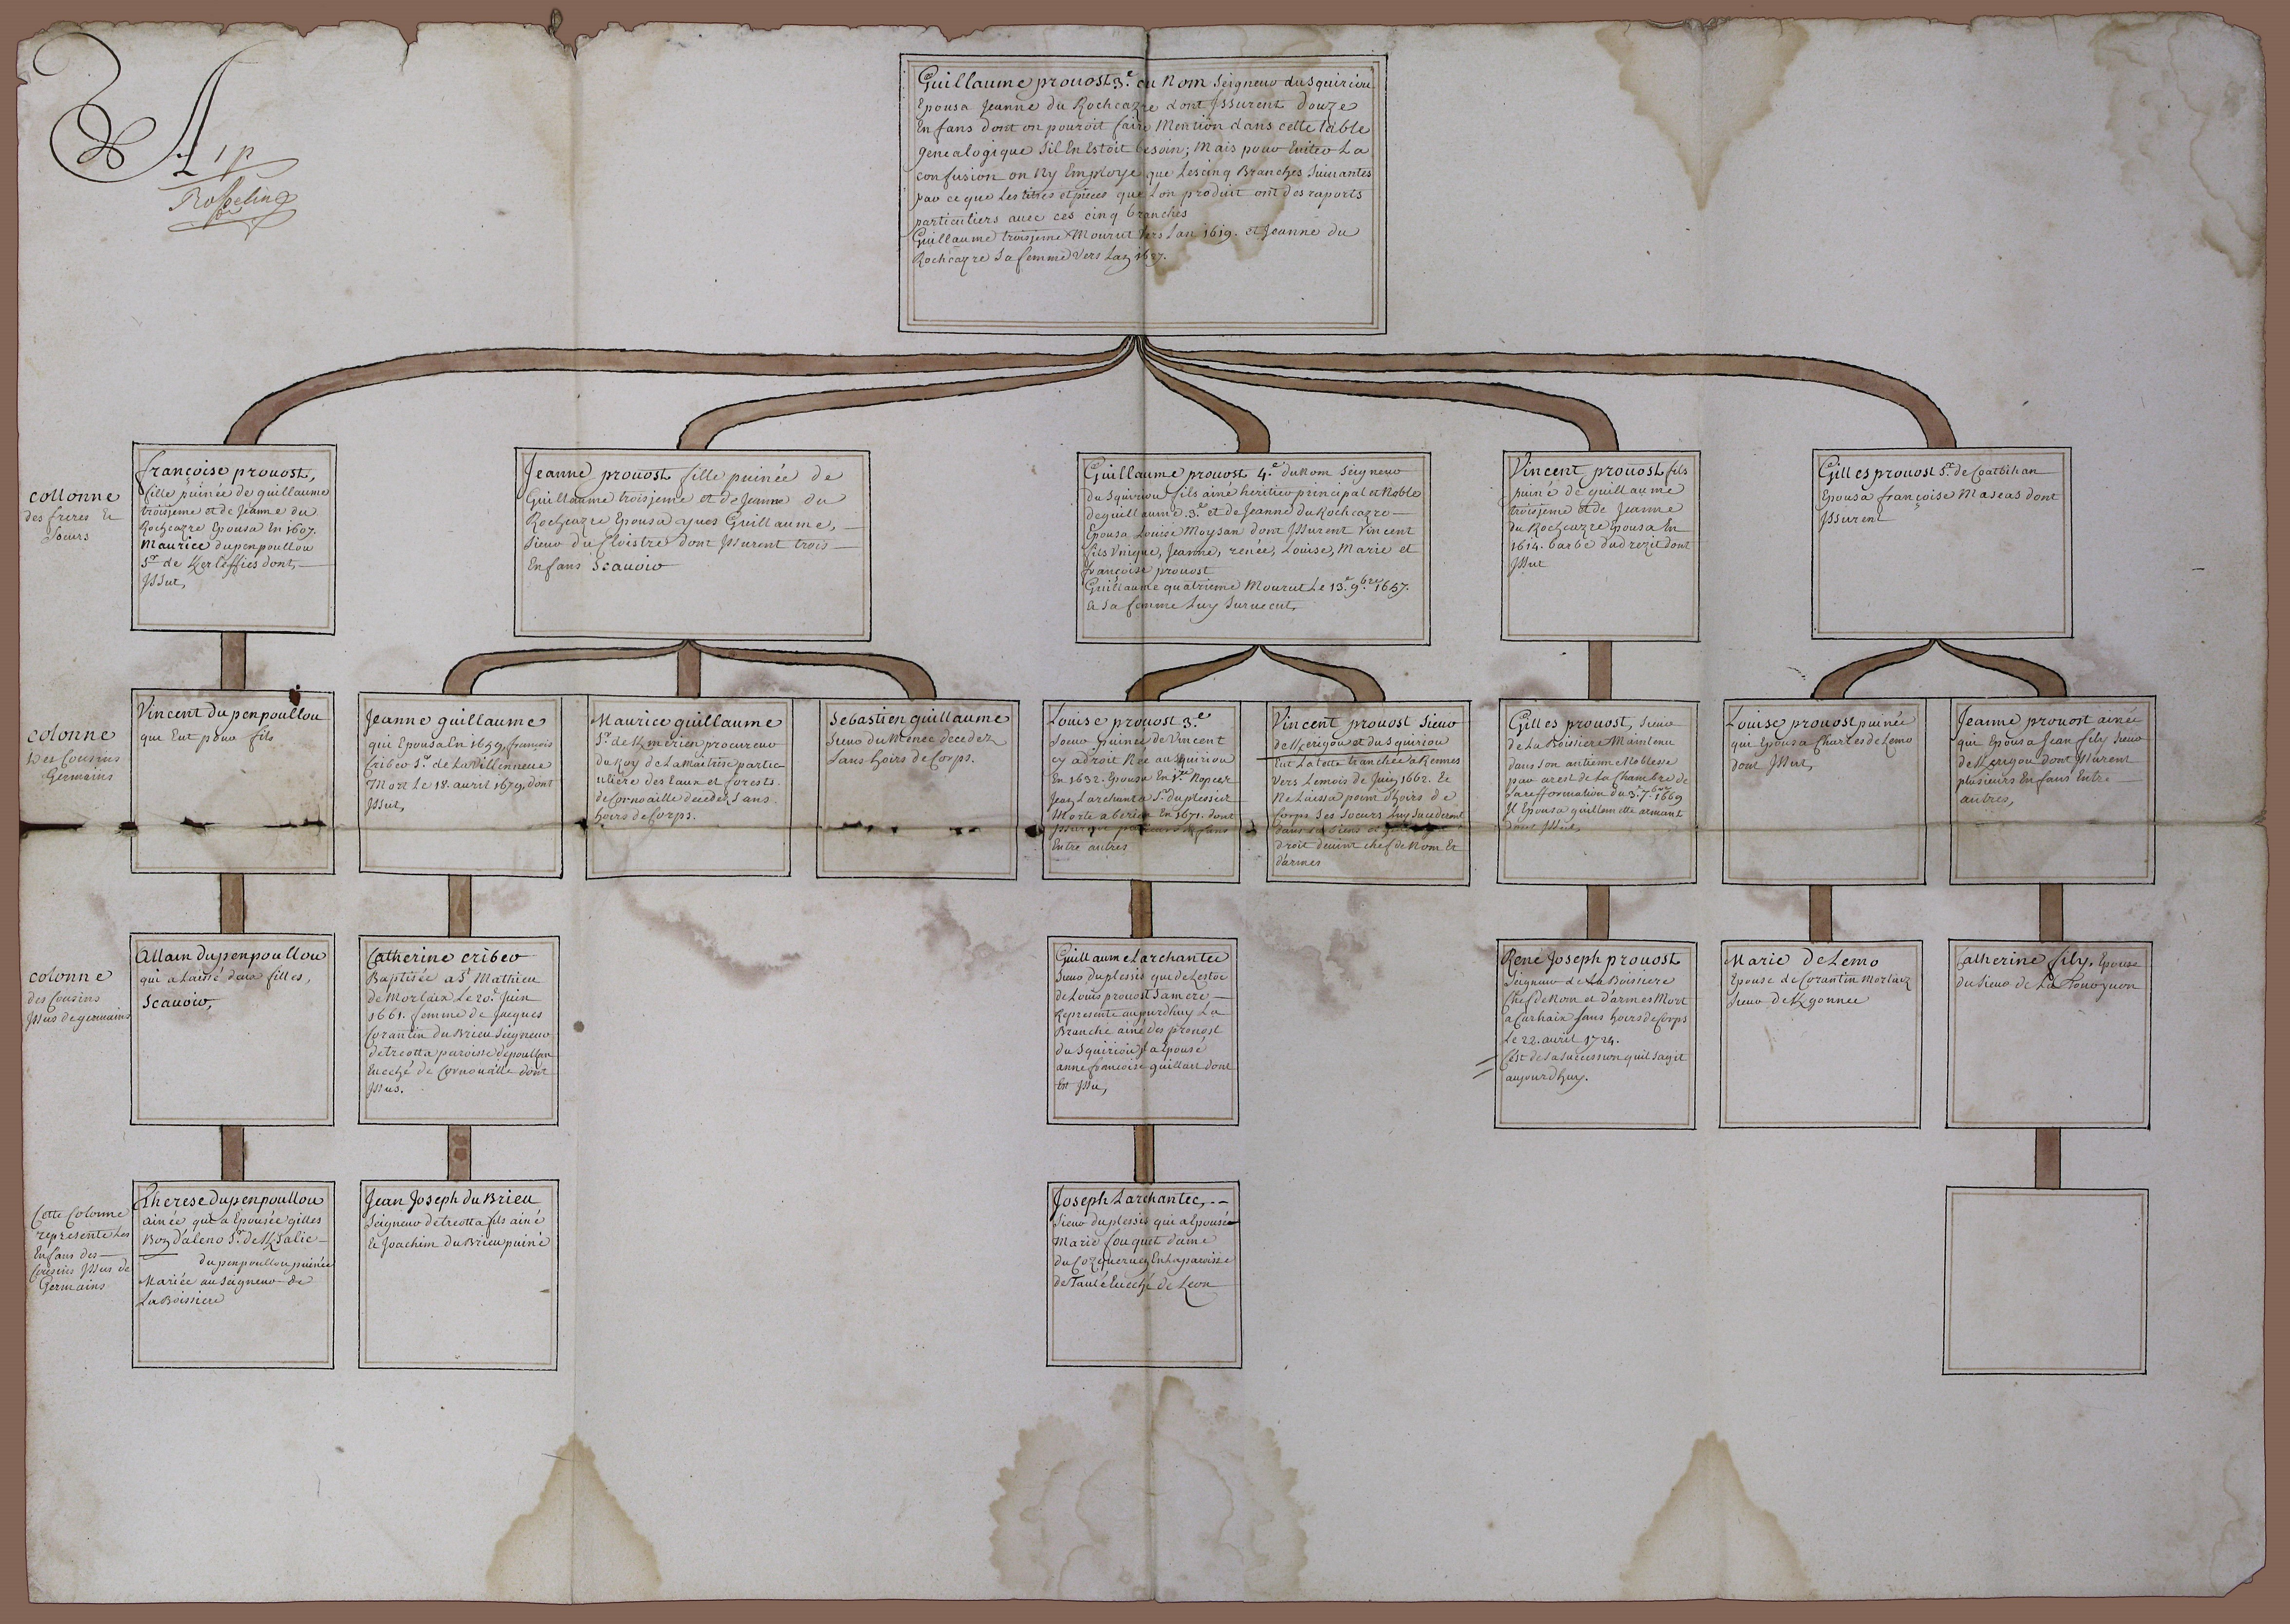 A
1 p
Guillaume prouost 3.e du Nom Seigneur du Squiriou
Epousa Jeanne du Rochcazre dont Jssurent Douze
Enfans dont on pouroit faire Mention dans cette table
genealogique sil En Estoit besoin; Mais pour Euiter La
confusion on Ny Employe que Les cinq Branches Suiuantes
par ce que Les titres et pieces que Lon produit ont des raports
particuliers auec ces cinq branches
Guillaume troisjeme Mourut Vers Lan 1619. et Jeanne du
Rochcazre Sa femme Vers Lan
collonne
des freres Et
Soeurs
françoise prouost,
fille puinée de guillaume
troisjeme et de Jeanne du
Rochcazre Epousa En 1607.
Maurice dupenpoullou
Sr. de Kerleffies dont,
Jssut,
Jeanne prouost fille puinée de
Guillaume troisjeme et de Jeanne du
Rochcazre Epousa yues Guillaume,
Sieur du Cloistre dont Jssurent trois
Enfans Scauoir
Guillaume prouost 4.e du Nom Seigneur
du Squiriou fils ainé heritier principal et Noble
de guillaume 3.e et de Jeanne du Rochcazre
Epousa Louise Moysan dont Jssurent Vincent
fils Vnique, Jeanne, renée, Louise, Marie et
françoise prouost
Guillaume quatrieme Mourut Le 13.e 9.bre 1657.
Et Sa femme Luy Suruecut,
Vincent prouost fils
puiné de guillaume
troisjeme et de Jeanne
du Rochcazre Epousa En
1614. barbe dudrezit dont
Jssut
Gilles prouost Sr. de Coatbihan
Epousa françoise Maseas dont
Jssurent
colonne
Des Cousins
Germains
Vincent du penpoullou
qui Eut pour fils
Jeanne guillaume
qui Epousa En 1659. françois
Cribeo Sr. de La Villenneue
Mort Le 18. auril 1679. dont
Jssut,
Maurice guillaume
Sr. de Kmerien procureur
du Roy de La Maitrise partic
uliere des Eaux et forests
de Cornoaille decedez Sans
hoirs de Corps.
Sebastien guillaume
Sieur du Menec decedez
Sans hoirs de Corps.
Louise prouost 3.e
Soeur puinée de Vincent
cy adroit Née au Squiriou
En 1632. Epousa En 1.re Nopces
Jean Larchantec Sr. duplessix
Morte a En 1671. dont
Jssurent plusieurs Enfans
Entre autres
Vincent prouost Sieur
de Kerigou et du Squiriou
Eut La teste tranchée a Rennes
Vers Lemois de Juin 1662. Et
Ne Laissa point d'hoirs de
Corps Ses Soeurs Luy Succederent
dans Ses biens et
droit deuint chef de Nom Et
d'armes
Gilles prouost, Sieur
de La Boissiere Maintenu
dans son antienne Noblesse
par arest de La Chambre de
La refformation du 3.e 7.bre 1669
Jl Epousa guillemette armant
dont Jssut,
Louise prouost puinée
qui Epousa Charles de Lemo
dont Jssut,
Jeanne prouost ainée
qui Epousa Jean fily Sieur
de Kerigou dont Jssurent
plusieurs Enfans Entre
autres,
colonne
des Cousins
Jssus de germains
Allain dupenpoullou
qui a Laissé deux filles,
Scauoir,
Catherine cribeo
Baptisée a St Mathieu
de Morlaix Le 20.e Juin
1661. femme de Jacques
Corantin du Brieu Seigneur
de treotta paroisse de poullan
Euesché de Cornouaille dont
Jssus.
Guillaume Larchantec
Sieur Duplessis qui de Lestoc
de Louis prouost Sa mere,
Represente aujourdhuy La
Branche ainé des prouost
du Squiriou Jl a Epousé
anne françoise guillart dont
Est Jssu,
René Joseph prouost
Seigneur de La Boissiere
Chef de Nom et d'armes Mort
a Carhaix Sans hoirs de Corps
Le 22. auril 1724.
C'est de Sa Succession quil Sagit
aujourdhuy.
Marie de Lemo
Epouse de Corantin Morliner
Sieur de Kgonnec
Catherine fily, Epouse
du Sieur de La
Cette Colonne
represente Les
Enfans des
Cousins Jssus de
Germains
Therese dupenpoullou
ainée qui a Epousée gilles
Boz d'aleno Sr. de KSalic
dupenpoullou puinée
Mariée au Seigneur de
La Boissiere
Jean Joseph du Brieu
Seigneur de treotta fils ainé
Et Joachim du Brieu puiné
Joseph Larchantec,
Sieur duplessis qui a Epousée
Marie fouquet dame
du Cozqueruen En La paroisse
de Taulé Euesché de Leon